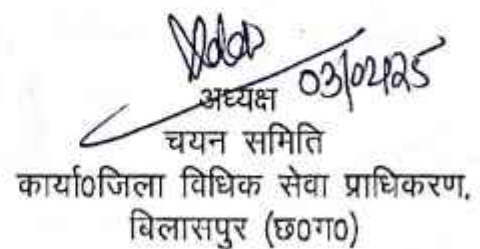 03/02/25
अध्यक्ष
चयन समिति
कार्या०जिला विधिक सेवा प्राधिकरण,
बिलासपुर (छ०ग०)